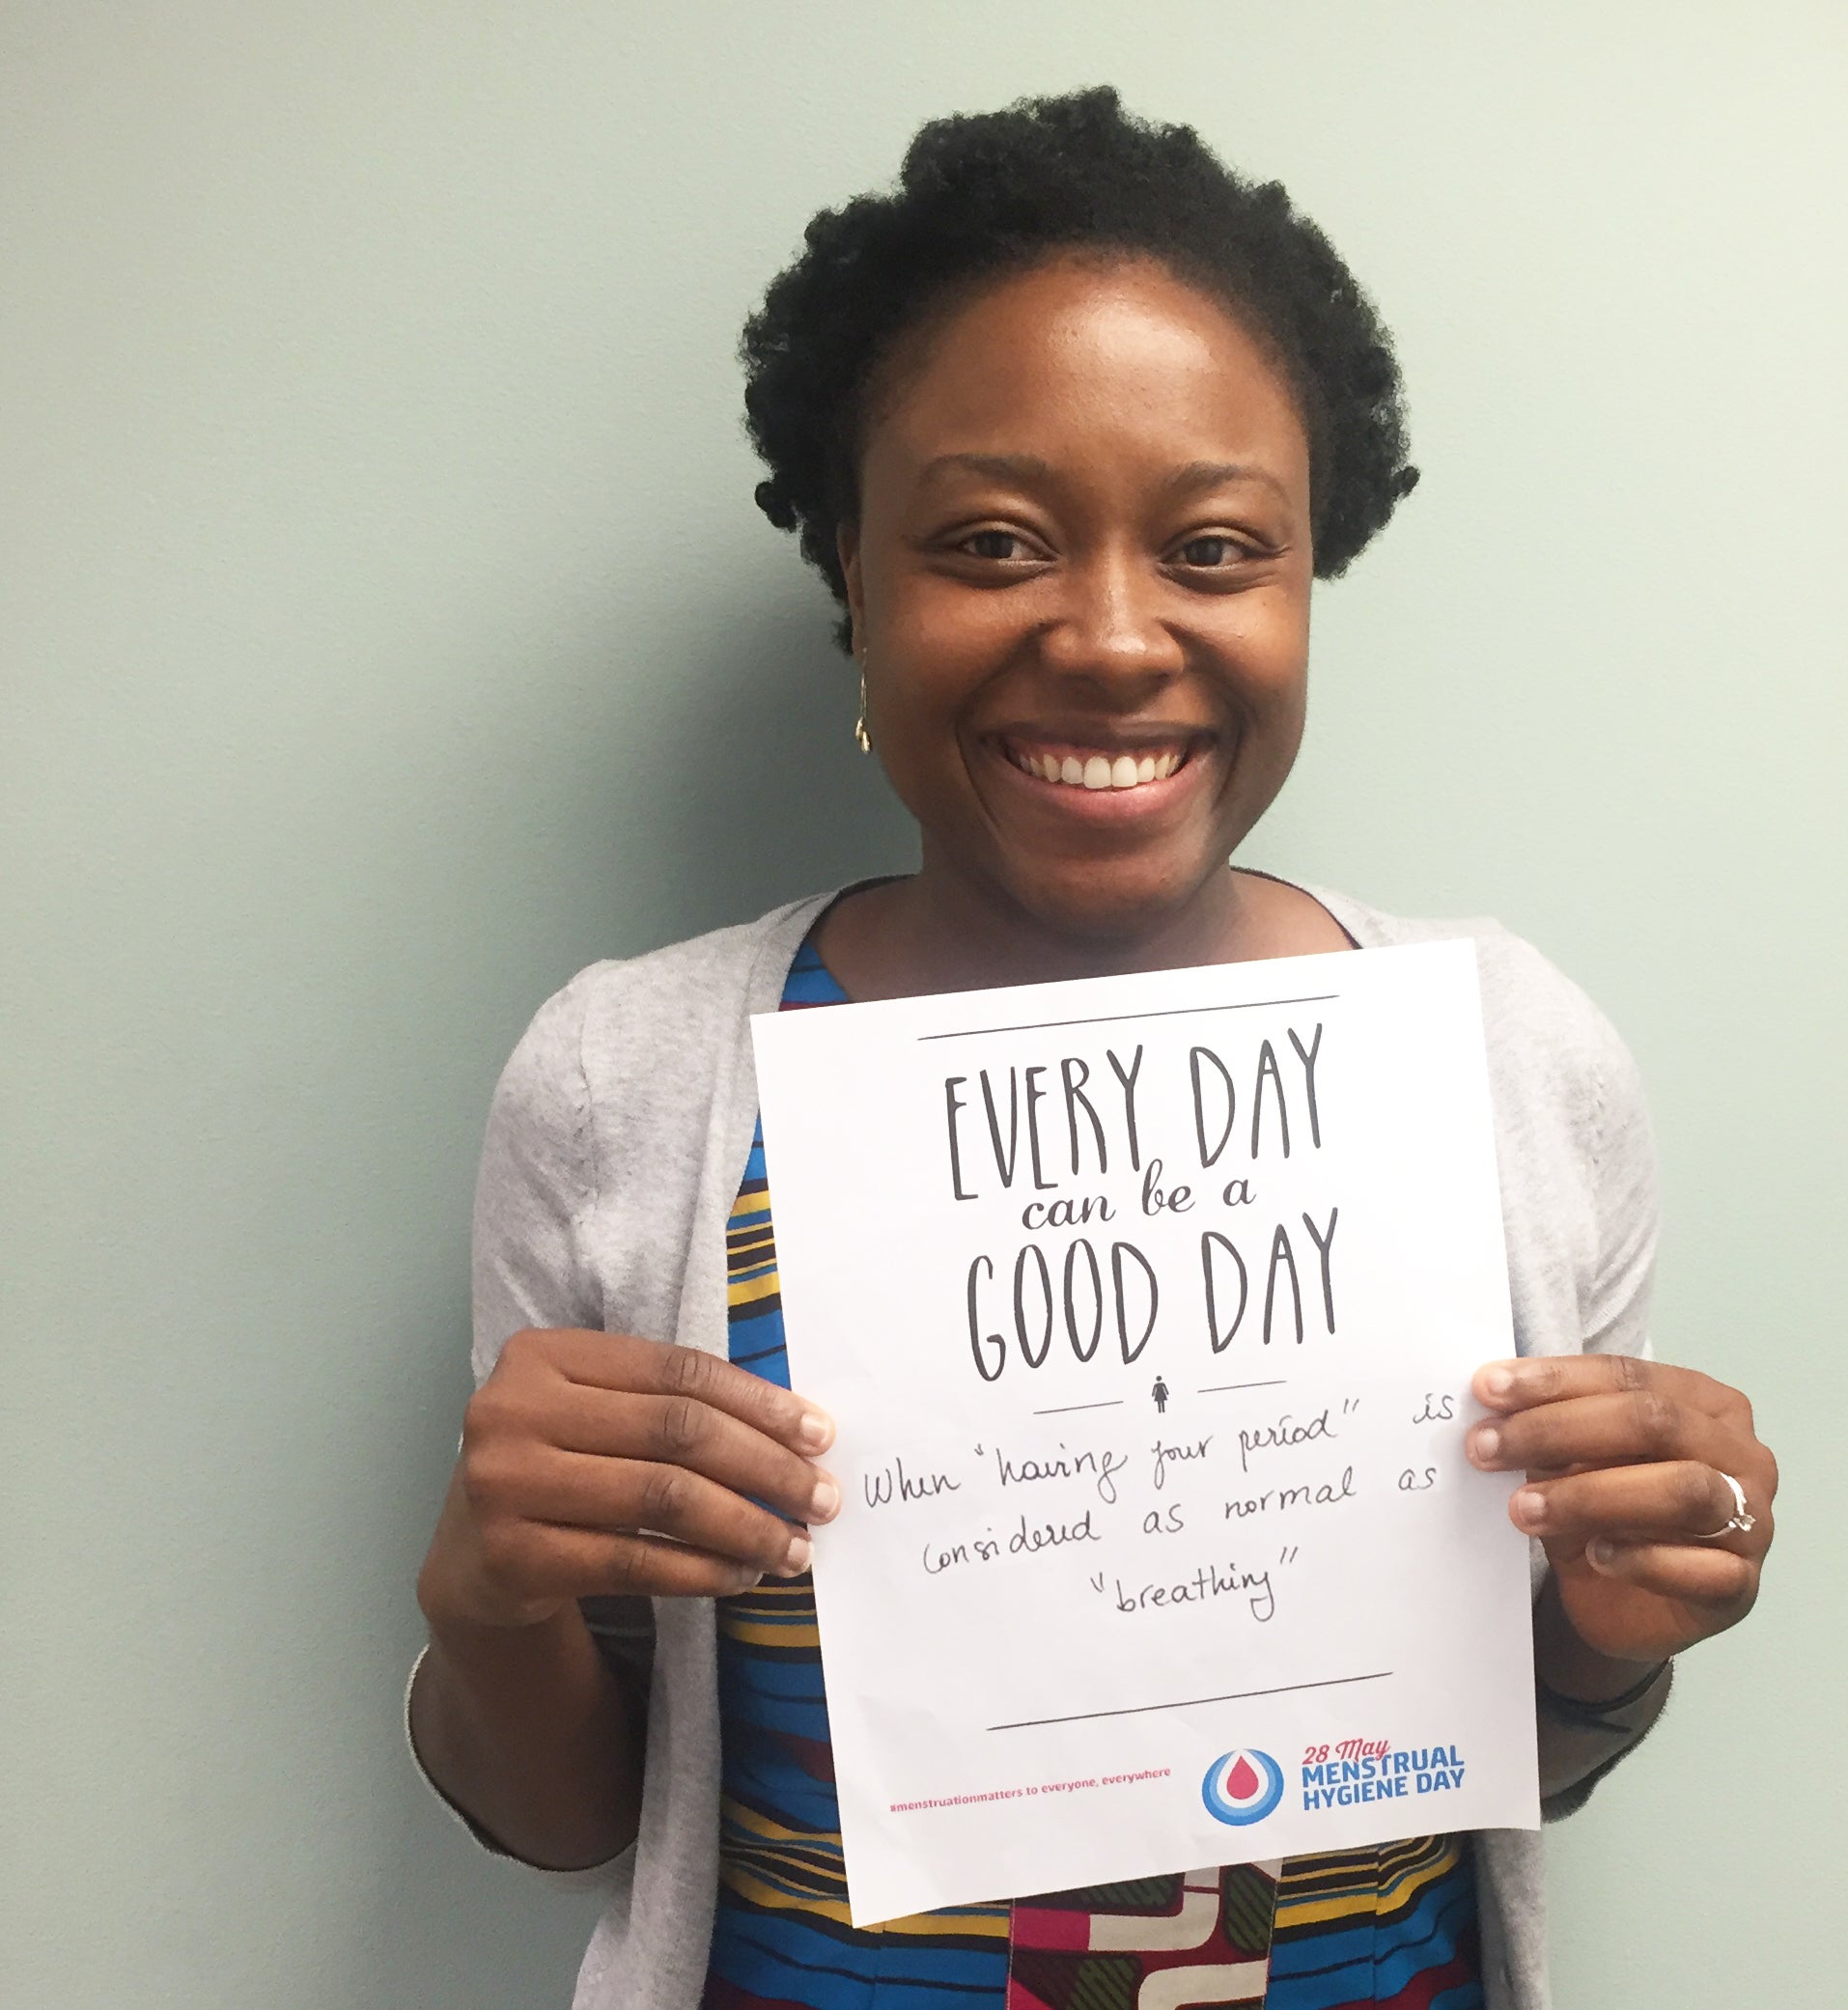 EVERY DAY
can be a
GOOD DAY
When "having your period" is
considered as normal as
"breathing"
#menstruationmatters to everyone, everywhere
28 May
MENSTRUAL
HYGIENE DAY